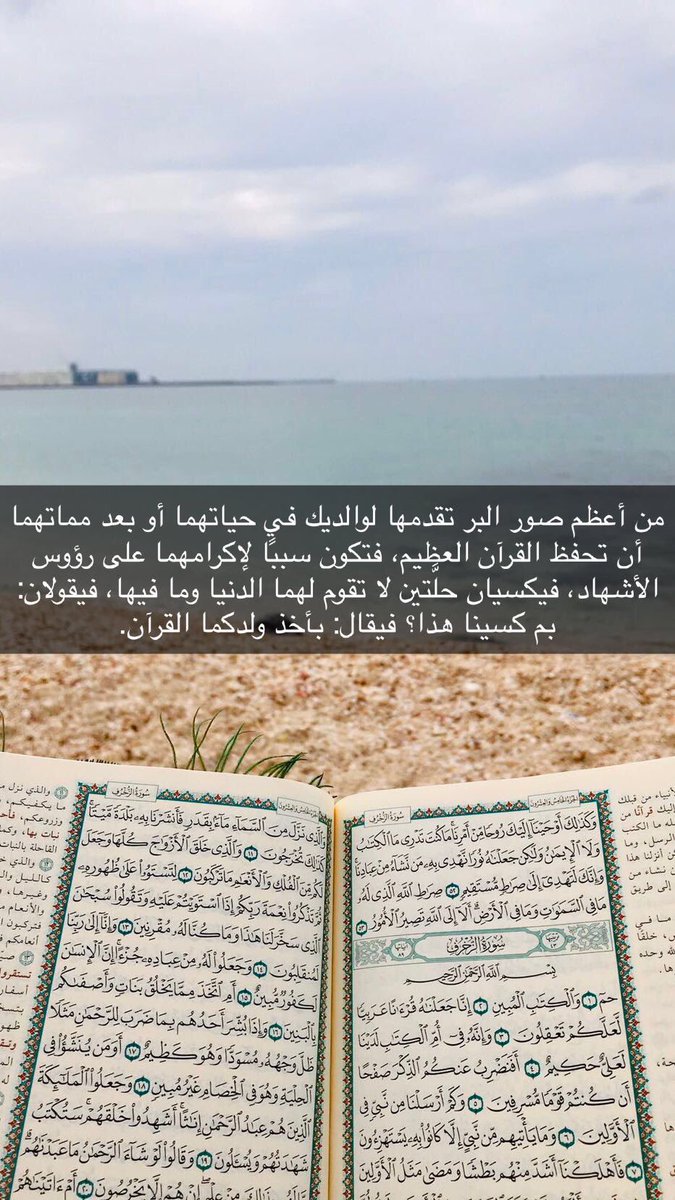 من أعظم صور البر تقدمها لوالديك في حياتهما أو بعد مماتهما
أن تحفظ القرآن العظيم، فتكون سببًا لإكرامهما على رؤوس
الأشهاد، فيكسيان حلَّتين لا تقوم لهما الدنيا وما فيها، فيقولان:
بم كسينا هذا؟ فيقال: بأخذ ولدكما القرآن.
الجزء الخامس والعشرون
سورة الزخرف
وَكَذَٰلِكَ أَوْحَيْنَآ إِلَيْكَ رُوحًا مِّنْ أَمْرِنَا مَا كُنتَ تَدْرِى مَا ٱلْكِتَٰبُ
وَلَا ٱلْإِيمَٰنُ وَلَٰكِن جَعَلْنَٰهُ نُورًا نَّهْدِى بِهِۦ مَن نَّشَآءُ مِنْ عِبَادِنَا
وَإِنَّكَ لَتَهْدِىٓ إِلَىٰ صِرَٰطٍ مُّسْتَقِيمٍ ٥٢ صِرَٰطِ ٱللَّهِ ٱلَّذِى لَهُۥ
مَا فِى ٱلسَّمَٰوَٰتِ وَمَا فِى ٱلْأَرْضِ أَلَآ إِلَى ٱللَّهِ تَصِيرُ ٱلْأُمُورُ ٥٣
سُورَةُ الزُّخْرُفِ
بِسْمِ ٱللَّهِ ٱلرَّحْمَٰنِ ٱلرَّحِيمِ
حمٓ ١ وَٱلْكِتَٰبِ ٱلْمُبِينِ ٢ إِنَّا جَعَلْنَٰهُ قُرْءَٰنًا عَرَبِيًّا
لَّعَلَّكُمْ تَعْقِلُونَ ٣ وَإِنَّهُۥ فِىٓ أُمِّ ٱلْكِتَٰبِ لَدَيْنَا
لَعَلِىٌّ حَكِيمٌ ٤ أَفَنَضْرِبُ عَنكُمُ ٱلذِّكْرَ صَفْحًا
أَن كُنتُمْ قَوْمًا مُّسْرِفِينَ ٥ وَكَمْ أَرْسَلْنَا مِن نَّبِىٍّ فِى
ٱلْأَوَّلِينَ ٦ وَمَا يَأْتِيهِم مِّن نَّبِىٍّ إِلَّا كَانُوا۟ بِهِۦ يَسْتَهْزِءُونَ ٧
فَأَهْلَكْنَآ أَشَدَّ مِنْهُم بَطْشًا وَمَضَىٰ مَثَلُ ٱلْأَوَّلِينَ
الجزء الخامس والعشرون
سورة الزخرف
وَٱلَّذِى نَزَّلَ مِنَ ٱلسَّمَآءِ مَآءً بِقَدَرٍ فَأَنشَرْنَا بِهِۦ بَلْدَةً مَّيْتًا
كَذَٰلِكَ تُخْرَجُونَ ١١ وَٱلَّذِى خَلَقَ ٱلْأَزْوَٰجَ كُلَّهَا وَجَعَلَ
لَكُم مِّنَ ٱلْفُلْكِ وَٱلْأَنْعَٰمِ مَا تَرْكَبُونَ ١٢ لِتَسْتَوُۥا۟ عَلَىٰ ظُهُورِهِۦ
ثُمَّ تَذْكُرُوا۟ نِعْمَةَ رَبِّكُمْ إِذَا ٱسْتَوَيْتُمْ عَلَيْهِ وَتَقُولُوا۟ سُبْحَٰنَ
ٱلَّذِى سَخَّرَ لَنَا هَٰذَا وَمَا كُنَّا لَهُۥ مُقْرِنِينَ ١٣ وَإِنَّآ إِلَىٰ رَبِّنَا
لَمُنقَلِبُونَ ١٤ وَجَعَلُوا۟ لَهُۥ مِنْ عِبَادِهِۦ جُزْءًا إِنَّ ٱلْإِنسَٰنَ
لَكَفُورٌ مُّبِينٌ ١٥ أَمِ ٱتَّخَذَ مِمَّا يَخْلُقُ بَنَاتٍ وَأَصْفَىٰكُم
بِٱلْبَنِينَ ١٦ وَإِذَا بُشِّرَ أَحَدُهُم بِمَا ضَرَبَ لِلرَّحْمَٰنِ مَثَلًا
ظَلَّ وَجْهُهُۥ مُسْوَدًّا وَهُوَ كَظِيمٌ ١٧ أَوَمَن يُنَشَّؤُا۟ فِى
ٱلْحِلْيَةِ وَهُوَ فِى ٱلْخِصَامِ غَيْرُ مُبِينٍ ١٨ وَجَعَلُوا۟ ٱلْمَلَٰٓئِكَةَ
ٱلَّذِينَ هُمْ عِبَٰدُ ٱلرَّحْمَٰنِ إِنَٰثًا أَشَهِدُوا۟ خَلْقَهُمْ سَتُكْتَبُ
شَهَٰدَتُهُمْ وَيُسْـَٔلُونَ ١٩ وَقَالُوا۟ لَوْ شَآءَ ٱلرَّحْمَٰنُ مَا عَبَدْنَٰهُم
مَّا لَهُم بِذَٰلِكَ مِنْ عِلْمٍ إِنْ هُمْ إِلَّا يَخْرُصُونَ ٢٠ أَمْ ءَاتَيْنَٰهُمْ